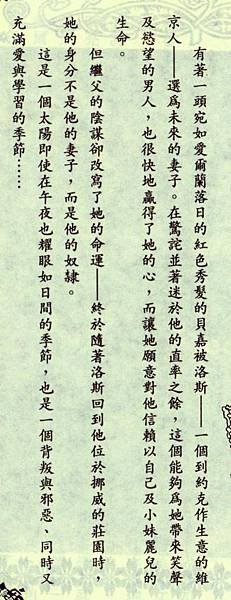 有著一頭宛如愛爾蘭落日的紅色秀髮的貝嘉被洛斯——一個到約克作生意的維
京人——選為未來的妻子。在驚詫並著迷於他的直率之餘，這個能夠為她帶來笑聲
及慾望的男人，也很快地贏得了她的心，而讓她願意對他信賴以自己及小妹麗兒的
生命。
但繼父的陰謀卻改寫了她的命運——終於隨著洛斯回到他位於挪威的莊園時，
她的身分不是他的妻子，而是他的奴隸。
這是一個太陽即使在午夜也耀眼如日間的季節，也是一個背叛與邪惡、同時又
充滿愛與學習的季節……